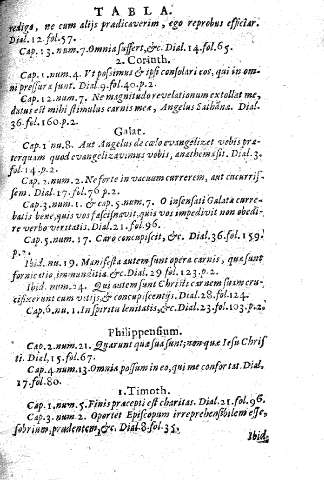 TABLA.
redigo, ne cum alijs prædicaverim, ego reprobus efficiar.
Dial.12.fol.57.
Cap.13.num.7.Omnia suffert,&c. Dial.14.fol.65.
2. Corinth.
Cap.1.num.4. Ut possimus & ipsi consolari eos, qui in om
ni pressura sunt. Dial.9.fol.40.p.2.
Cap.12.num.7. Ne magnitudo revelationum extollat me,
datus est mihi stimulus carnis meæ, Angelus Sathanæ. Dial.
36.fol.160.p.2.
Galat.
Cap.1 nu.8. Aut Angelus de cælo evangelizet vobis præ
terquam quod evangelizavimus vobis, anathema sit. Dial.3.
fol.14.p.2.
Cap.2.num.2. Ne forte in vacuum currerem, aut cucurris-
sem. Dial.17.fol.76 p.2.
Cap.3.num.1. & cap.5.num.7. O insensati Galatæ curre-
batis bene, quis vos fascinavit, quis vos impedivit non obedi-
re verbo veritatis. Dial.21.fol.96.
Cap.5.num.17. Caro concupiscit, &c. Dial.36.fol.159.
p.2.
Ibid. nu.19. Manifesta autem sunt opera carnis, quæ sunt
fornicatio, immunditia &c. Dial.29 fol.123.p.2.
Ibid. num.24. Qui autem sunt Christi carnem suam cru-
cifixerunt cum vitijs, & concupiscentijs. Dial.28.fol.124.
Cap.6.nu.1. In spiritu lenitatis, &c. Dial.23.fol.103.p.2.
Philippensium.
Cap.2.num.21. Quærunt quæ sua sunt; non quæ Iesu Chris
ti. Dial,15.fol.67.
Cap.4.num.13. Omnia possum in eo, qui me confortat. Dial.
17.fol.80.
1. Timoth.
Cap.1.num.5. Finis præcepti est charitas. Dial.21.fol.96.
Cap.3.num.2. Oportet Episcopum irreprehensibilem esse,
sobrium, prudentem, &c. Dial.8.fol.35.
Ibid.